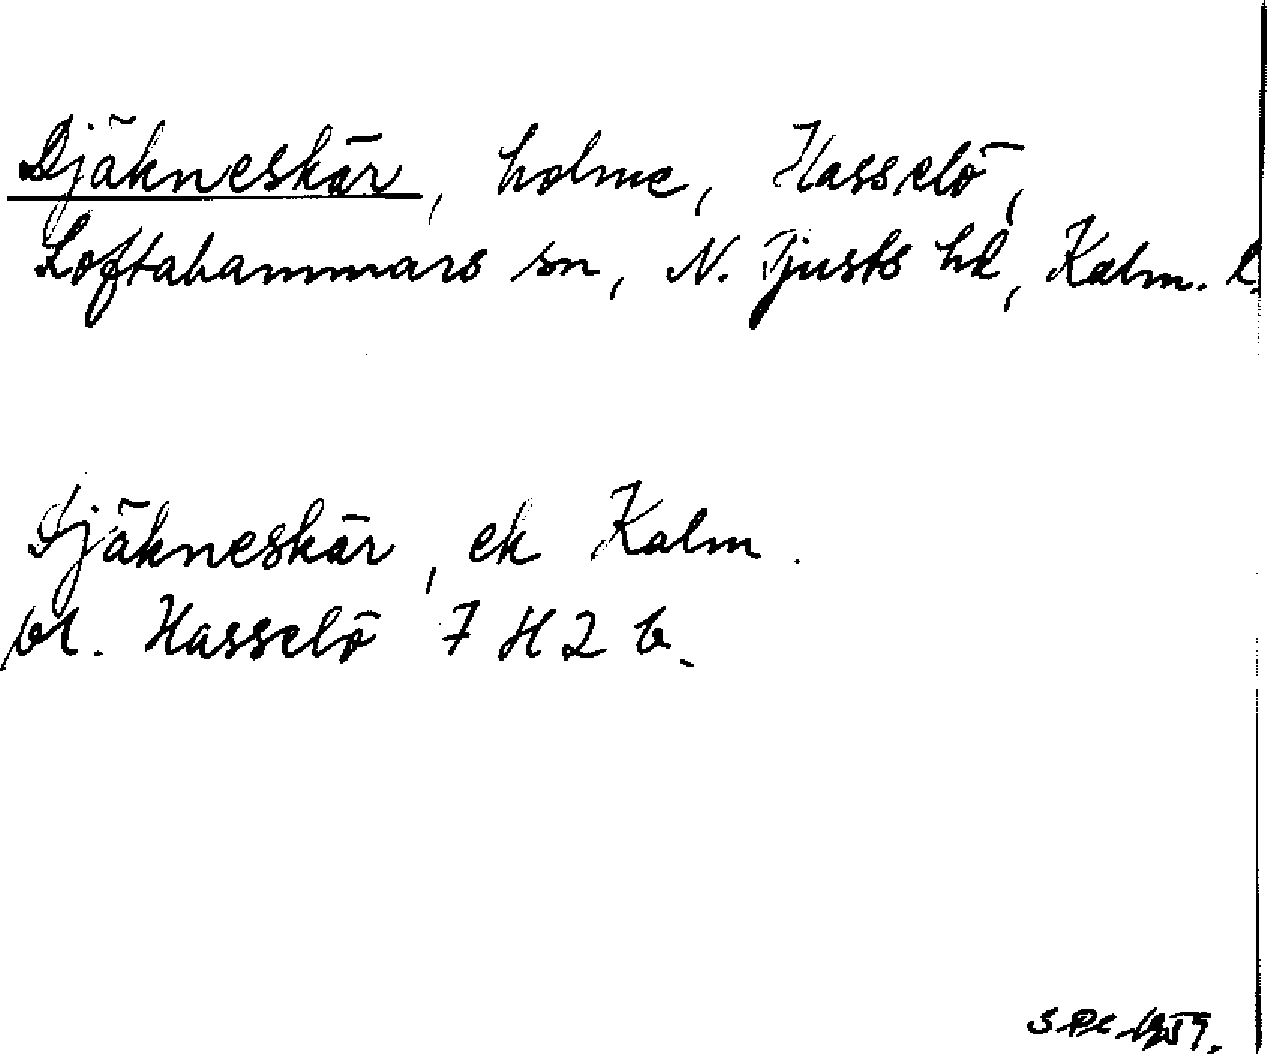 Djäkneskär, holme, Hasselö,
Loftahammars sn, N. Tjusts hd, Kalm. l.
Djäkneskär, ek Kalm.
bl. Hasselö 7 H 2 b.
1959.